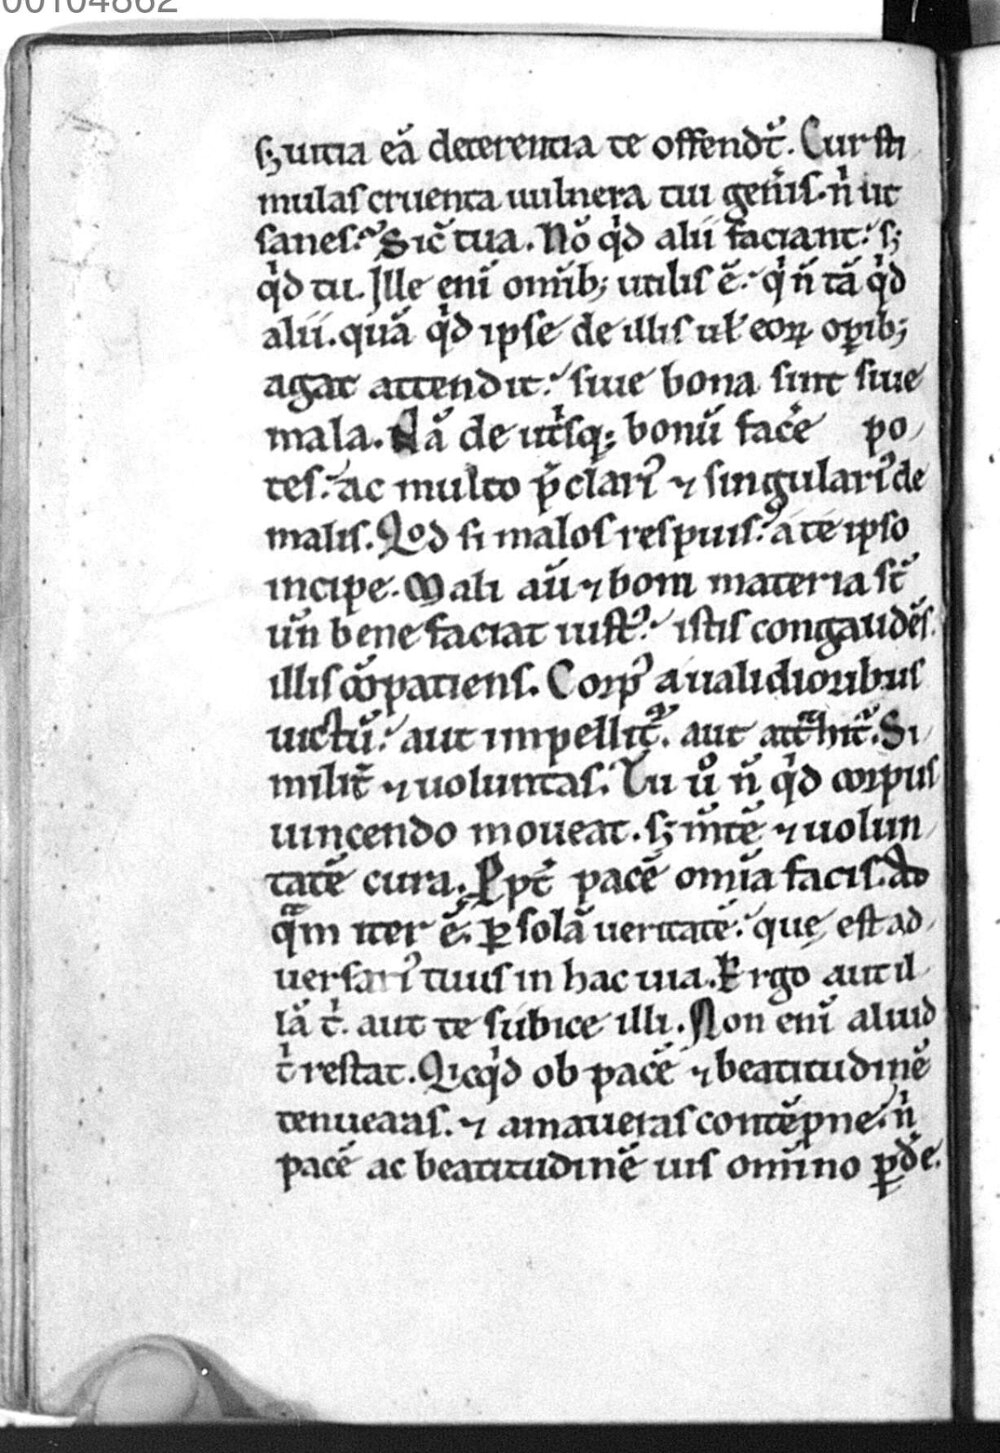 00104862
sꝫ uitia eā deterentia te offendt̄. Cur sti
mulas cruenta uulnera tui gen̄is. n̄ ut
sanes. Sic̄ tua. Nō qͥd alii faciant. sꝫ
qͥd tu. Ille eni̅ omībꝫ utilis ē. qͥ n̄ tā qͥd
alii. quā qͥd ipse de illis uł eoꝝ oꝑibꝫ
agat attendit. siue bona sint siue
mala. Nā de ut̍sqꝫ bonū fac̍e po
tes. ac multo p̄clari᷒ ⁊ singulari᷒ de
malis. Qod si malos respuis. a te ipso
incipe. Mali aū ⁊ boni materia st̄
un̄ bene faciat iust᷒. istis congaudēs.
illis ꝯpatiens. Corp᷒ a ualidioribus
uictū. aut impellit᷑. aut att̾hit᷑. Si
milit̄ ⁊ uoluntas. Tu ū n̄ qͥd corpus
uincendo moueat. sꝫ m̄tē ⁊ uolun
tatē cura. Ꝓpt̄ pacē omīa facis. Ad
qᷓm iter ē. ꝑ solā ueritatē. quę est ad
uersari᷒ tuus in hac uia. Ergo aut il
lā t̍. aut te subice illi. Non enī aliud
t̍ restat. Qicqͥd ob pacē ⁊ beatitudinē
tenueras. ⁊ amaueras contēpne. n̍
pacē ac beatitudinē uis omīno ꝑd̍e.